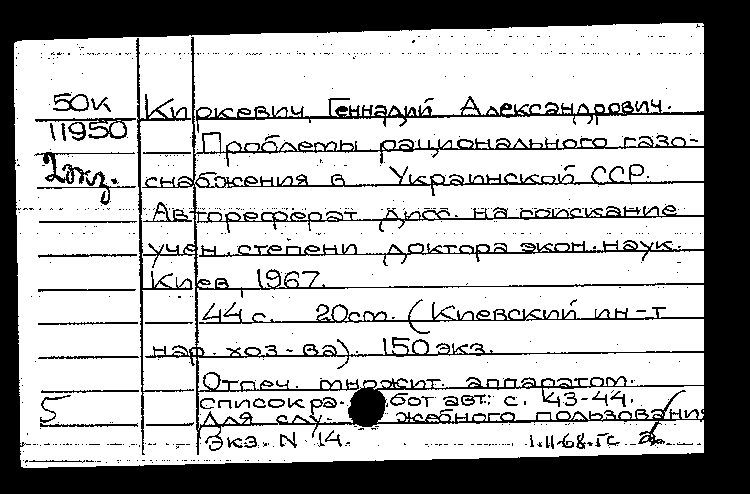 50к Киркевич, Геннадий Александрович.
11950 Проблемы рационального газо-
2экз. снабжения в Украинской ССР.
Автореферат дисс. на соискание
учен. степени доктора экон. наук.
Киев, 1967.
44 с. 20cm. (Киевский ин-т
нар. хоз-ва). 150 экз.
Отпеч. множит. аппаратом.
5 список ра- бот авт: с. 43-44.
Для слу- жебного пользования
экз. N 14. 1.II-68.Гс